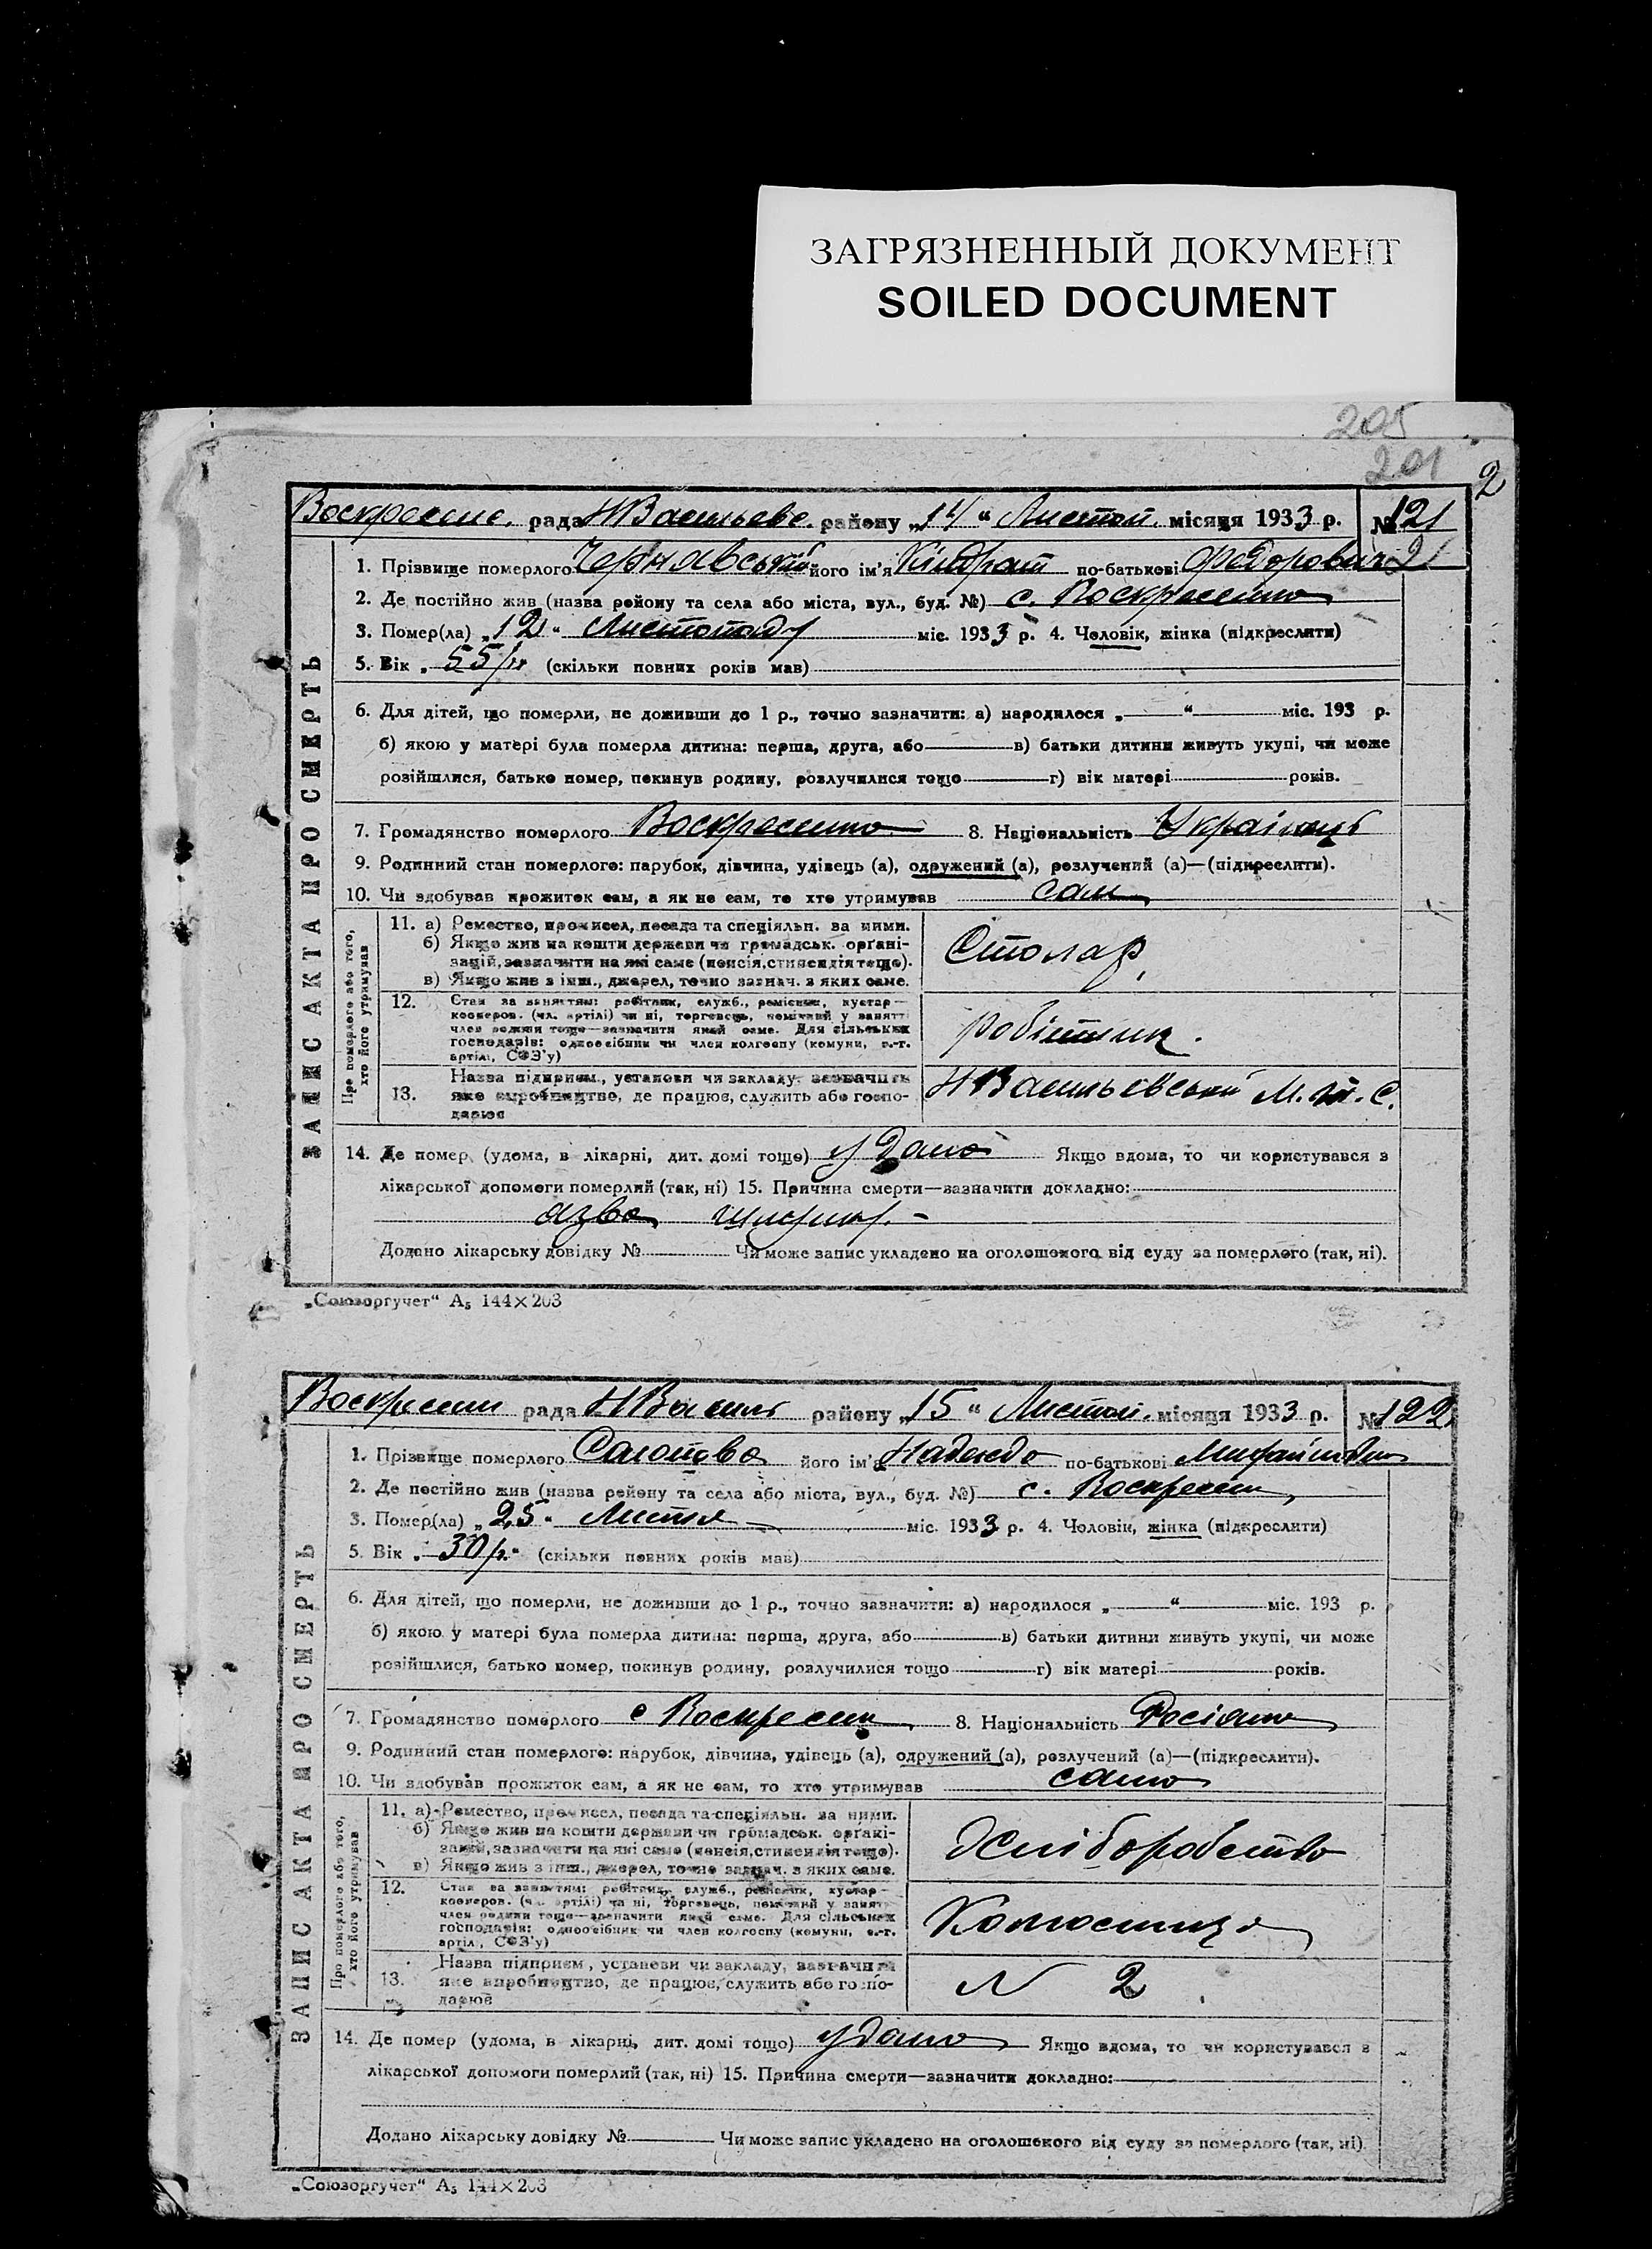 ЗАГРЯЗНЕННЫЙ ДОКУМЕНТ
SOILED DOCUMENT
205
201
2
рада НВасильеве. району „14“ Листоп. місяця 1933 р. № 121
1. Прізвище померлого Чернявський його ім'я Кіндрат по-батькові Федорович 21
2. Де постійно жив (назва району та села або міста, вул., буд. №) с.
3. Помер(ла) „12“ Листопаду міс. 1933 р. 4. Чоловік, жінка (підкреслити)
5. Вік „55 (скільки повних років мав)
6. Для дітей, що померли, не доживши до 1 р., точно зазначити: а) народилося „ “ міс. 193 р.
б) якою у матері була померла дитина: перша, друга, або в) батьки дитини живуть укупі, чи може
розійшлися, батько помер, покинув родину, розлучилися тощо г) вік матері років.
7. Громадянство померлого 8. Національність Українець
9. Родинний стан померлого: парубок, дівчина, удівець (а), одружений (а), розлучений (а)—(підкреслити).
10. Чи здобував прожиток сам, а як не сам, то хто утримував сам
ЗАПИС АКТА ПРО СМЕРТЬ
Про померлого або того, хто його утримував
11. а) Ремество, промисел, посада та спеціяльн. за ними.
б) Якщо жив на кошти держави чи громадськ. орґані-
зацій, зазначити на які саме (пенсія, стипендія тощо).
в) Якщо жив з інш., джерел, точно зазнач. з яких саме.
Столяр
12. Стан за заняттям: робітник, служб., ремісник, кустар—
кооперов. (чл. артілі) чи ні, торговець, помічний у занятті
член родини тощо—зазначити який саме. Для сільських
господарів: одноосібник чи член колгоспу (комуни, с.-г.
артіл., СОЗ'у)
робітник.
13. Назва підприєм., установи чи закладу, зазначити
яке виробництво, де працює, служить або госпо-
дарює
НВасильєвський М.Т.С.
14. Де помер (удома, в лікарні, дит. домі тощо) у Дома Якщо вдома, то чи користувався з
лікарської допомоги померлий (так, ні) 15. Причина смерти—зазначити докладно:
язва
Додано лікарську довідку № Чи може запис укладено на оголошеного від суду за померлого (так, ні).
„Союзоргучет“ А₅ 144×203
рада НВасиль району „15“ Листоп. місяця 1933 р. № 122
1. Прізвище померлого його ім'я Надежда по-батькові
2. Де постійно жив (назва району та села або міста, вул., буд. №) с.
3. Помер(ла) „25“ міс. 1933 р. 4. Чоловік, жінка (підкреслити)
5. Вік „30 р.“ (скільки повних років мав)
6. Для дітей, що померли, не доживши до 1 р., точно зазначити: а) народилося „ “ міс. 193 р.
б) якою у матері була померла дитина: перша, друга, або в) батьки дитини живуть укупі, чи може
розійшлися, батько помер, покинув родину, розлучилися тощо г) вік матері років.
7. Громадянство померлого с 8. Національність
9. Родинний стан померлого: парубок, дівчина, удівець (а), одружений (а), розлучений (а)—(підкреслити).
10. Чи здобував прожиток сам, а як не сам, то хто утримував сама
ЗАПИС АКТА ПРО СМЕРТЬ
Про померлого або того, хто його утримував
11. а) Ремество, промисел, посада та спеціяльн. за ними.
б) Якщо жив на кошти держави чи громадськ. орґані-
зацій, зазначити на які саме (пенсія, стипендія тощо).
в) Якщо жив з інш., джерел, точно зазнач. з яких саме.
12. Стан за заняттям: робітник, служб., ремісник, кустар—
кооперов. (чл. артілі) та ні, торговець, помічний у занятті
член родини тощо—зазначити який саме. Для сільських
господарів: одноосібник чи член колгоспу (комуни, с.-г.
артіл., СОЗ'у)
13. Назва підприєм., установи чи закладу, зазначити
яке виробництво, де працює, служить або госпо-
дарює
N 2
14. Де помер (удома, в лікарні, дит. домі тощо) удома Якщо вдома, то чи користувався з
лікарської допомоги померлий (так, ні) 15. Причина смерти—зазначити докладно:
Додано лікарську довідку № Чи може запис укладено на оголошеного від суду за померлого (так, ні).
„Союзоргучет“ А₅ 144×203